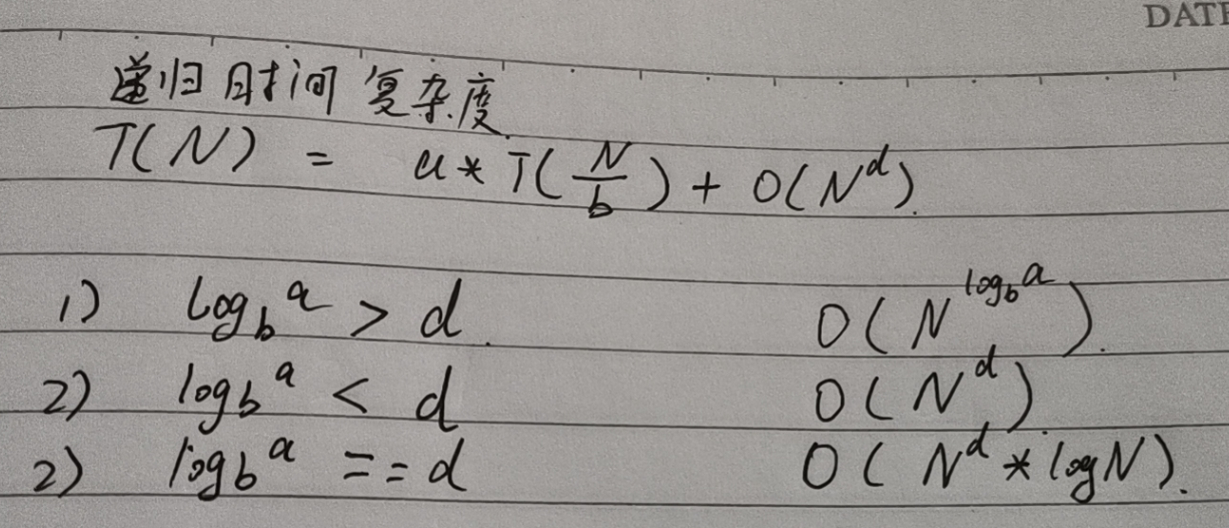 DATE
递归时间复杂度
T(N) = a*T(N/b) + O(N^d)
1) log_b^a > d. O(N^(log_b^a)).
2) log_b^a < d O(N^d).
2) log_b^a == d O(N^d * logN).